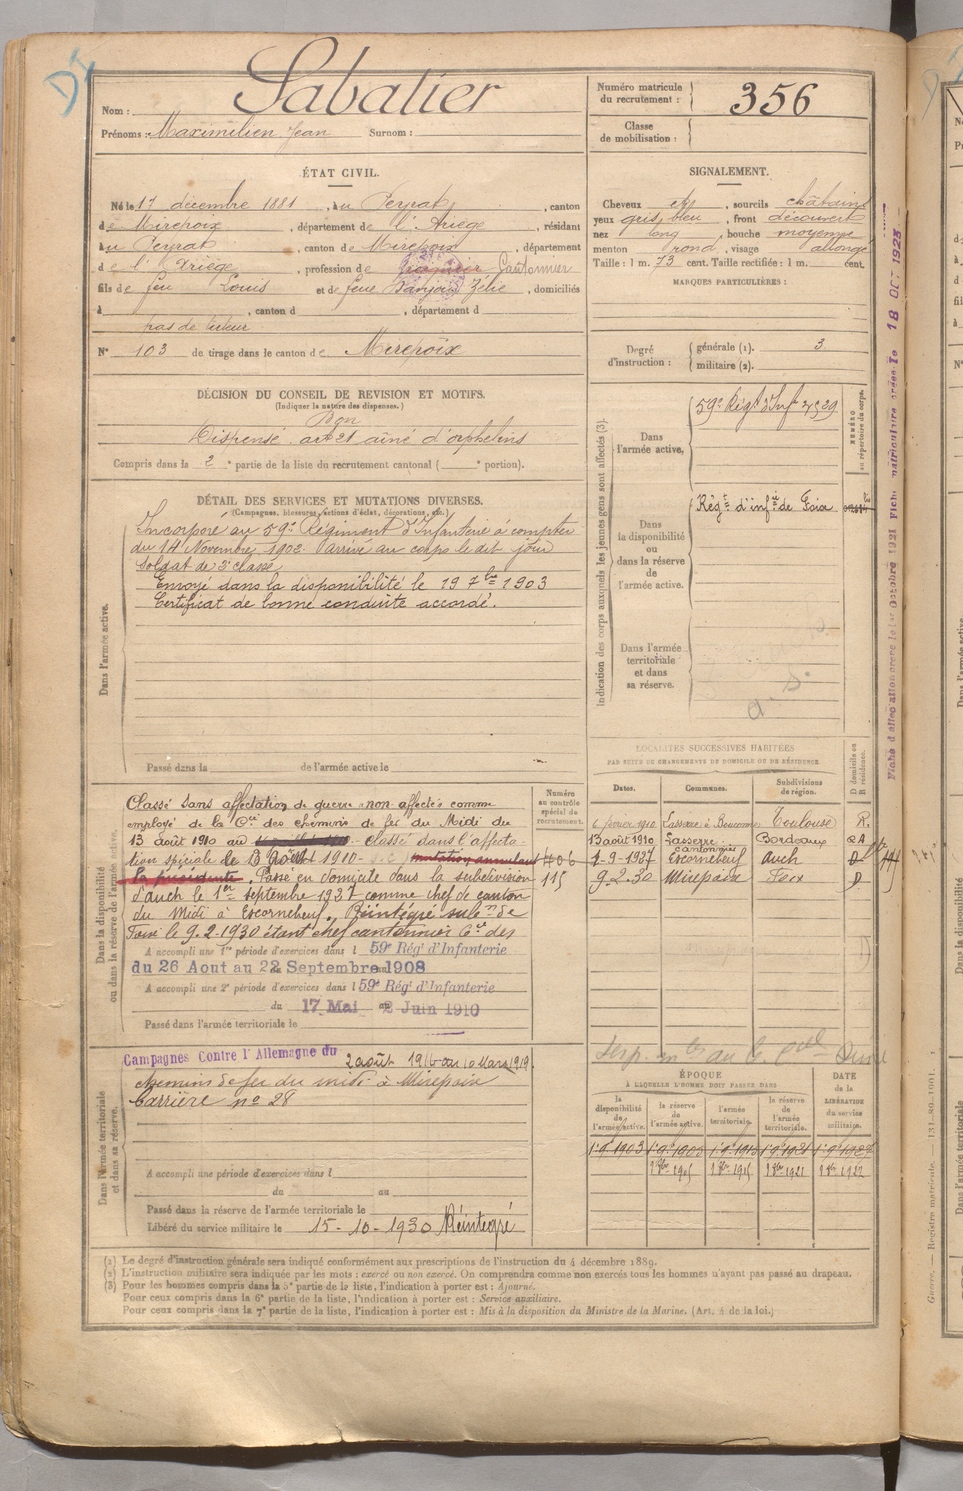 Nom : Sabatier
Prénoms : Maximilien Jean Surnom :
Numéro matricule du recrutement : 356
Classe de mobilisation :
ÉTAT CIVIL.
Né le 17 décembre 1881, à u Peyrat, canton
d e Mirepoix, département de l'Ariège, résidant
à u Peyrat, canton de Mirepoix, département
d e l'Ariège, profession de Cantonnier
fils de feu Louis et de feue Zélie, domiciliés
à , canton d , département d
pas de tuteur
N° 103 de tirage dans le canton de Mirepoix
SIGNALEMENT.
Cheveux , sourcils châtains
yeux gris bleu, front découvert
nez long, bouche moyenne
menton rond, visage allongé
Taille : 1 m. 73 cent. Taille rectifiée : 1 m. cent.
MARQUES PARTICULIÈRES :
Degré d'instruction : générale (1). 3
militaire (2).
DÉCISION DU CONSEIL DE REVISION ET MOTIFS.
(Indiquer la nature des dispenses.)
Bon
Dispensé art 21 aîné d'orphelins
Compris dans la 2e partie de la liste du recrutement cantonal ( e portion).
DÉTAIL DES SERVICES ET MUTATIONS DIVERSES.
(Campagnes, blessures, actions d'éclat, décorations, etc.)
Dans l'armée active.
Incorporé au 59e Régiment d'Infanterie à compter
du 14 Novembre 1902. arrivé au corps le dit jour
Soldat de 2e classe
Envoyé dans la disponibilité le 19 7bre 1903
Certificat de bonne conduite accordé.
Passé dans la de l'armée active le
Indication des corps auxquels les jeunes gens sont affectés (3).
Dans l'armée active.
59e Régt d'Infie
NUMÉRO au répertoire du corps.
Dans la disponibilité ou dans la réserve de l'armée active.
Régt d'infie de Foix
Dans l'armée territoriale et dans sa réserve.
Dans la disponibilité ou dans la réserve de l'armée active.
Classé sans affectation de guerre "non affecté" comme
employé de la Cie des chemins de fer du Midi du
13 août 1910 au classé dans l'affecta-
tion spéciale le 13 Août 1910 - mutation annulant
la précédente. Passé en domicile dans la subdivision
d'auch le 1er septembre 1927 comme chef de canton
du Midi à Escornebeuf. Réintégré subon de
Foix le 9.2.1930 étant chef cantonnier Cie des
A accompli une 1re période d'exercices dans l 59e Régt d'Infanterie
du 26 Aout au 22 Septembre 1908
A accompli une 2e période d'exercices dans l 59e Régt d'Infanterie
du 17 Mai au 2 Juin 1910
Passé dans l'armée territoriale le
Numéro au contrôle spécial du recrutement.
406
115
LOCALITÉS SUCCESSIVES HABITÉES
PAR SUITE DE CHANGEMENTS DE DOMICILE OU DE RÉSIDENCE.
Dates. Communes. Subdivisions de région. D domicile ou R résidence.
6 février 1910 Toulouse R.
13 août 1910 Lasserre Bordeaux
1-9-1927 Escornebeuf Auch D
9.2.30 Mirepoix Foix D
Dans l'armée territoriale et dans sa réserve.
Campagnes Contre l'Allemagne du 2 août 1916 au 10 Mars 1919.
chemins de fer du midi à Mirepoix
Carrière no 28
A accompli une période d'exercices dans l
du au
Passé dans la réserve de l'armée territoriale le
Libéré du service militaire le 15-10-1930 Réintégré
ÉPOQUE
À LAQUELLE L'HOMME DOIT PASSER DANS
la disponibilité de l'armée active. la réserve de l'armée active. l'armée territoriale. la réserve de l'armée territoriale.
DATE de la LIBÉRATION du service militaire.
(1) Le degré d'instruction générale sera indiqué conformément aux prescriptions de l'instruction du 4 décembre 1889.
(2) L'instruction militaire sera indiquée par les mots : exercé ou non exercé. On comprendra comme non exercés tous les hommes n'ayant pas passé au drapeau.
(3) Pour les hommes compris dans la 5e partie de la liste, l'indication à porter est : Ajourné.
Pour ceux compris dans la 6e partie de la liste, l'indication à porter est : Service auxiliaire.
Pour ceux compris dans la 7e partie de la liste, l'indication à porter est : Mis à la disposition du Ministre de la Marine. (Art. 4 de la loi.)
18 OCT 1923